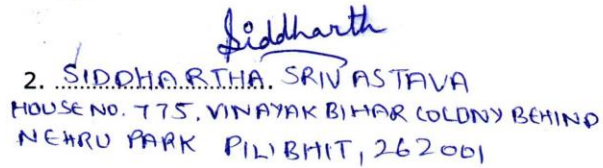 Siddharth
2. SIDDHARTHA. SRIVASTAVA
HOUSE NO. 775, VINAYAK BIHAR COLONY BEHIND
NEHRU PARK PILIBHIT, 262001